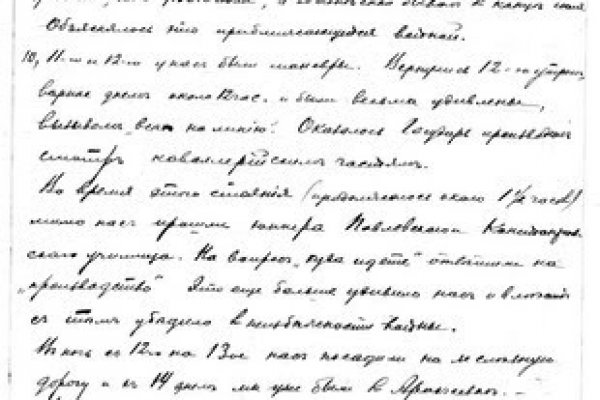 Объяснялось это приближающейся войной.
10, 11-го и 12-го у нас были маневры. Вернулись 12-го утром,
вернее днем около 12 час. и были весьма удивлены,
вызовом "всех на линию". Оказалось Государь производит
смотр кавалерийским частям.
Во время этого стояния (продолжалось около 1 1/2 часов)
мимо нас прошли юнкера Павловского Константинов
ского училища. На вопрос "куда идете" отвечали на
"производство" Это еще больше удивило нас и вместе
с тем убедило в неизбежности войны.
В ночь с 12го на 13ое нас посадили на железную
дорогу и к 14 днем мы уже были в